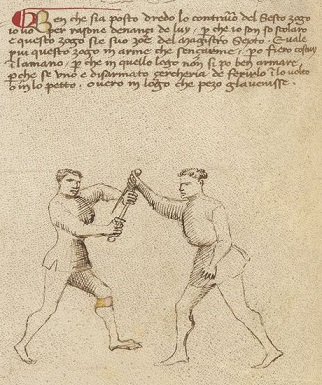 Ben che sia posto dredo lo contrario del Sesto zogo
io vo per rasone denanci de luy, p che io son so scolaro
e questo zogo sie suo zoe del magistro Sexto. E vale
piu questo zogo in arme che senç arme, po fiero costuy
i la mano, p che in quello logo non si po ben armare,
p che se uno e disarmato zercheria de ferirlo i lo volto
o in lo petto, overo in logo che pezo gl avenisse.